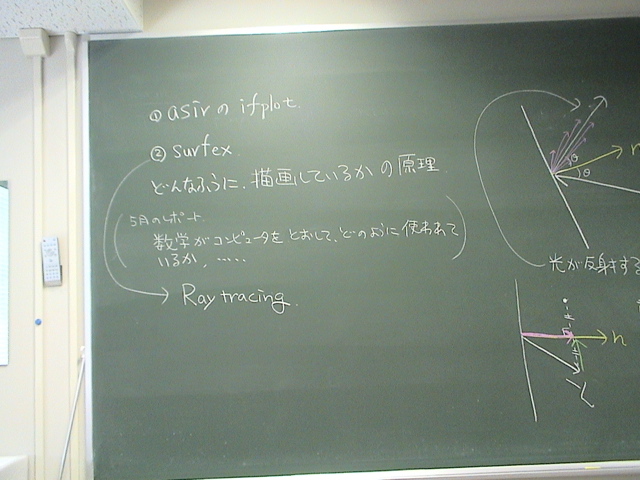 ① asirの ifplot.
② surfex.
どんなふうに、描画しているか の 原理
5月のレポート.
数学がコンピュータを とおして、どのように 使われて
いるか、……
Ray tracing.
n
θ
θ
光が反射する
n